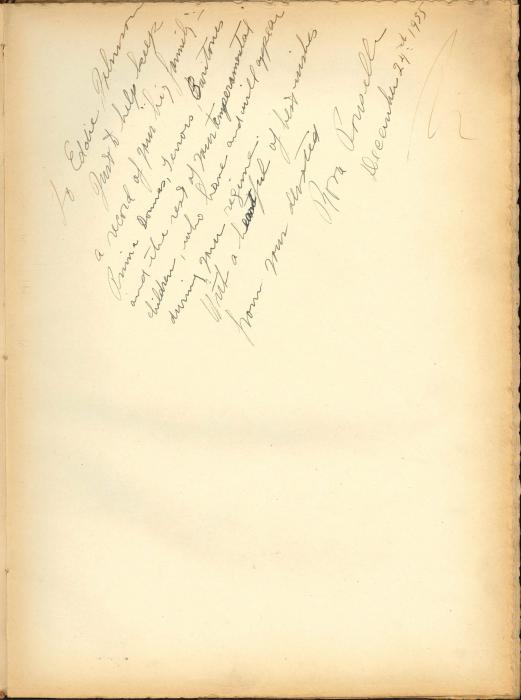 To Eddie Johnson
Just to help keep
a record of your big family —
Prima Donnas, Tenors Baritones
and the rest of your temperamental
children, who have and will appear
during your regime.
With a heartful of best wishes
from your devoted
Rosa Ponselle
December 24th 1935